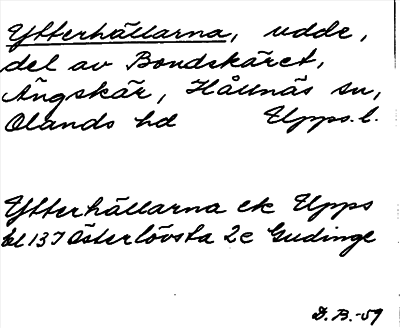 Ytterhällarna, udde,
del av Bondskäret,
Ängskär, Hållnäs sn,
Olands hd Upps. l.
Ytterhällarna ek Upps
bl 137 Österlövsta 2c Gudinge
D.B.-59